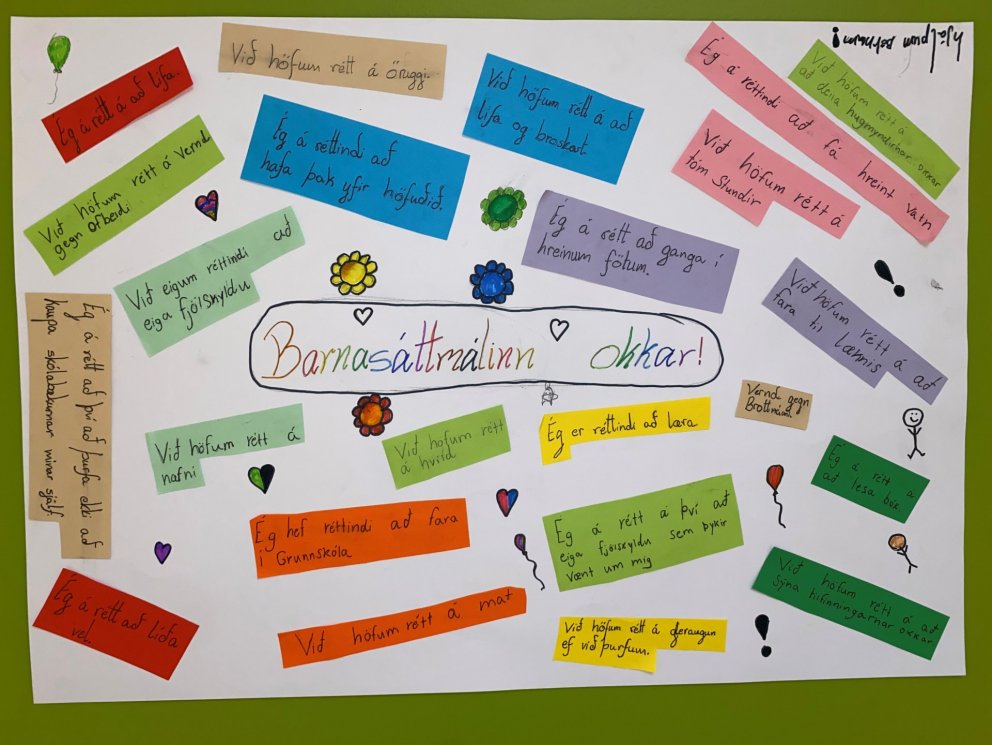 hjálpum börnum!
Ég á rétt á að lifa.
Við höfum rétt á öruggi.
Við höfum rétt á að
lifa og broskast.
Ég á réttindi að fá hreint vatn
Við höfum rétt á
að deila hugmyndirnar okkar
Við höfum rétt á vernd
gegn ofbeldi
Ég á réttindi að
hafa þak yfir höfuðið.
Við höfum rétt á
tóm stundir
Við eigum réttindi að
eiga fjölskyldu
Ég á rétt að ganga í
hreinum fötum.
Við höfum rétt á að
fara til læknis
Barnasáttmálinn okkar!
Ég á rétt að því að þurfa ekki að
kaupa skólabækurnar mínar sjálf.
Við höfum rétt á
nafni
Við höfum rétt
á hvíld
Ég er réttindi að læra
Vernd gegn
Brottnámi.
Ég á rétt a
að lesa bók.
Ég hef réttindi að fara
í Grunnskóla
Ég á rétt á því að
eiga fjölskyldu sem þykir
vænt um mig
Við höfum rétt á að
Sýna tilfinningarnar okkar
Ég á rétt að líða
vel.
Við höfum rétt á mat
Við höfum rétt á gleraugun
ef við þurfum.